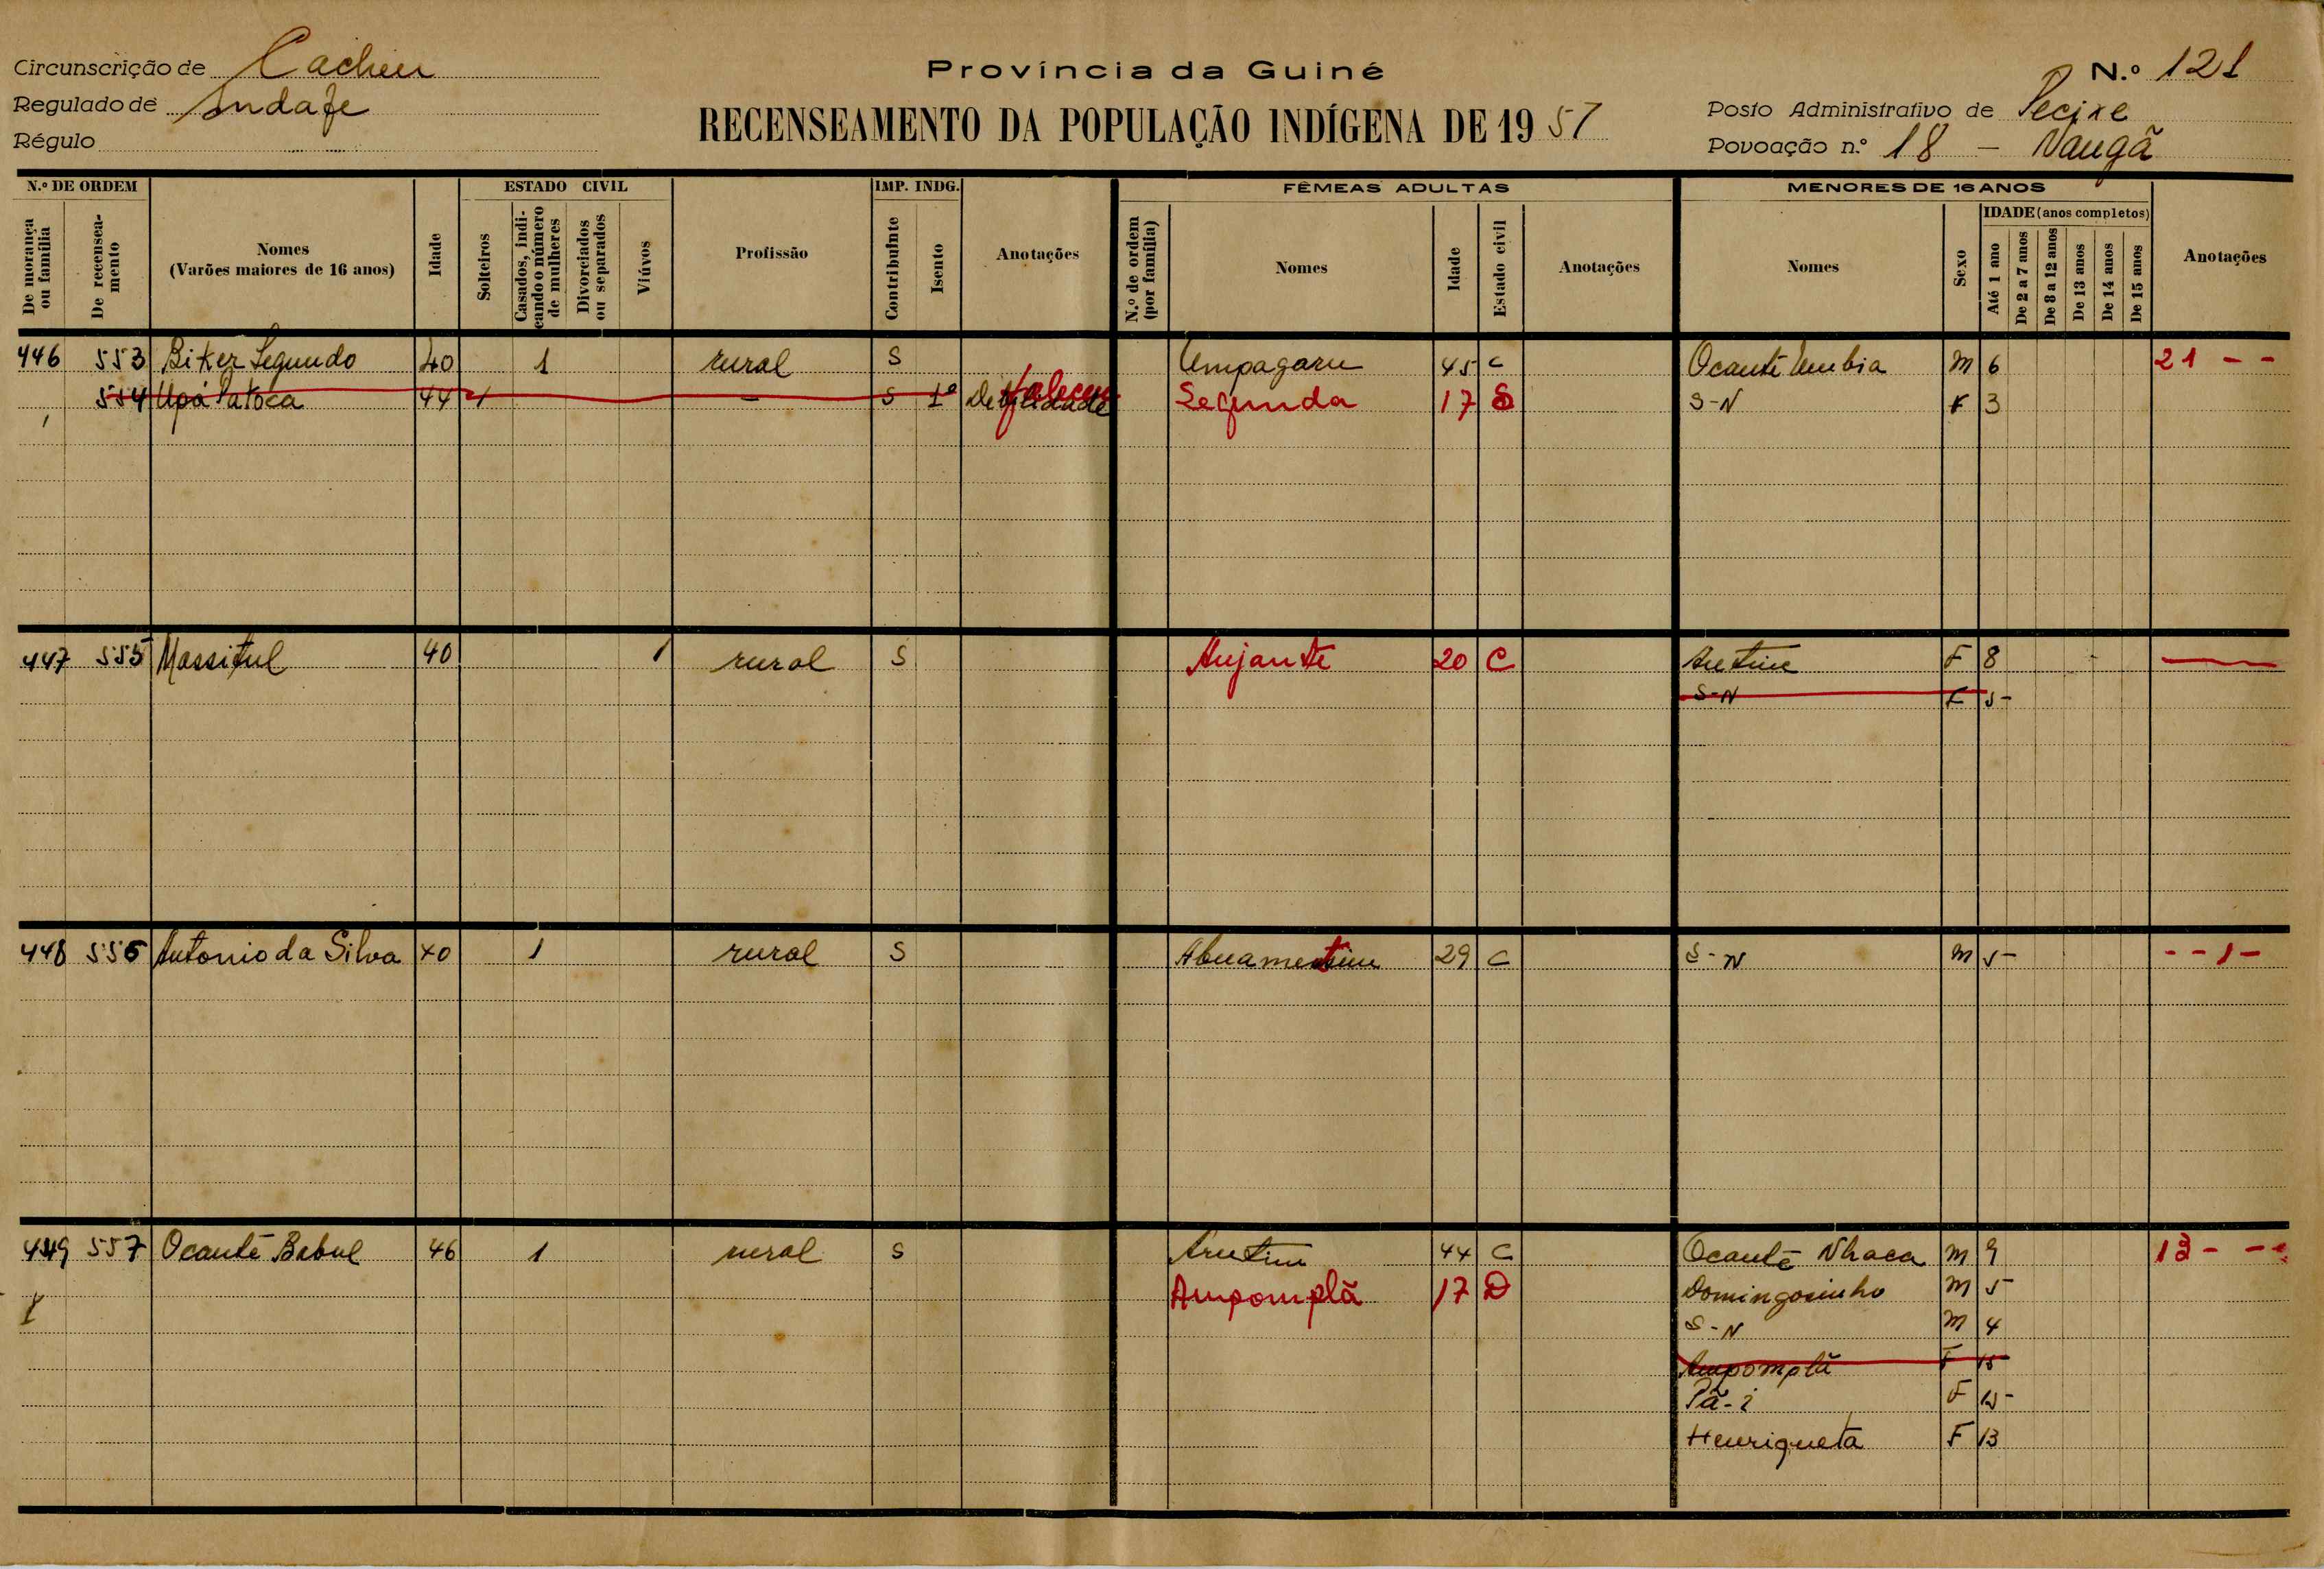 Circunscrição de Cacheu
Regulado de Indafe
Régulo
Província da Guiné
RECENSEAMENTO DA POPULAÇÃO INDÍGENA DE 1957
N.º 121
Posto Administrativo de Pecixe
Povoação n.º 18 - Naugã
N.º DE ORDEM
De morança ou família
De recenseamento
Nomes
(Varões maiores de 16 anos)
Idade
ESTADO CIVIL
Solteiros
Casados, indicando o número de mulheres
Divorciados ou separados
Viúvos
Profissão
IMP. INDG.
Contribuinte
Isento
Anotações
FÊMEAS ADULTAS
N.º de ordem (por família)
Nomes
Idade
Estado civil
Anotações
MENORES DE 16 ANOS
Nomes
Sexo
IDADE (anos completos)
Até 1 ano
De 2 a 7 anos
De 8 a 12 anos
De 13 anos
De 14 anos
De 15 anos
Anotações
446 553 Biker Segundo 40 1 rural S Umpagaru 45 C Ocante Umbia M 6 21 - -
554 Upá Patoca 44 1 - S 1º Debilidade faleceu Segunda 17 S S-N F 3
447 555 Massitul 40 1 rural S Anjante 20 C Aretim F 8
S-N F 5
448 556 Antonio da Silva 40 1 rural S 29 C S-N M 5 - - 1 -
449 557 Ocante Babul 46 1 rural S Arutim 44 C Ocante Nhaca M 9
Ampomplã 17 D Domingosinho M 5
S-N M 4
Ampomplã F 15
Pã-i F 15
Henriqueta F 13